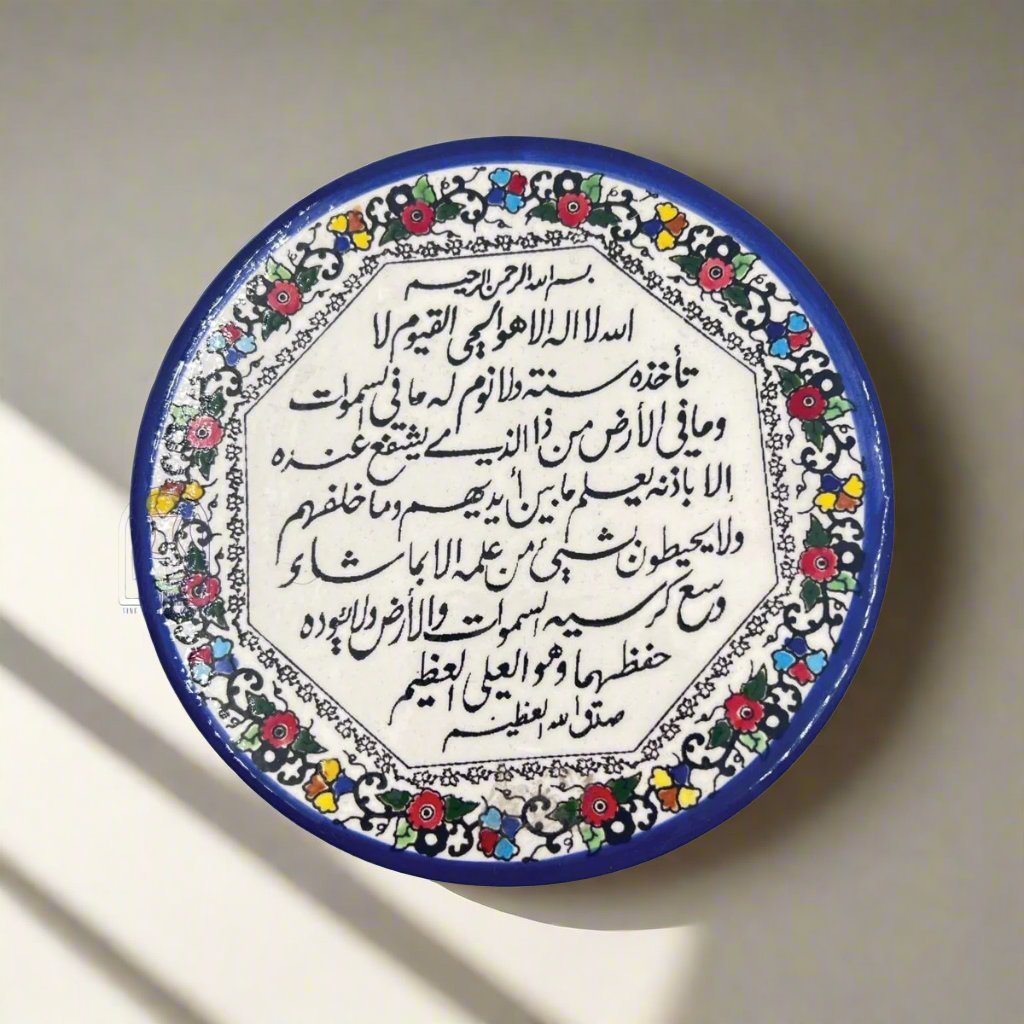 بسم الله الرحمن الرحيم
الله لا اله الا هو الحي القيوم لا
تأخذه سنة ولا نوم له ما في السموات
وما في الأرض من ذا الذي يشفع عنده
إلا باذنه يعلم ما بين أيديهم وما خلفهم
ولا يحيطون بشيئ من علمه الا بما شاء
وسع كرسيه السموات والأرض ولا يؤده
حفظهما وهو العلي العظيم
صدق الله العظيم